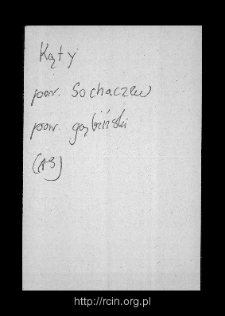 Kąty
pow. Sochaczew
pow. gąbiński
(AS)
http://rcin.org.pl